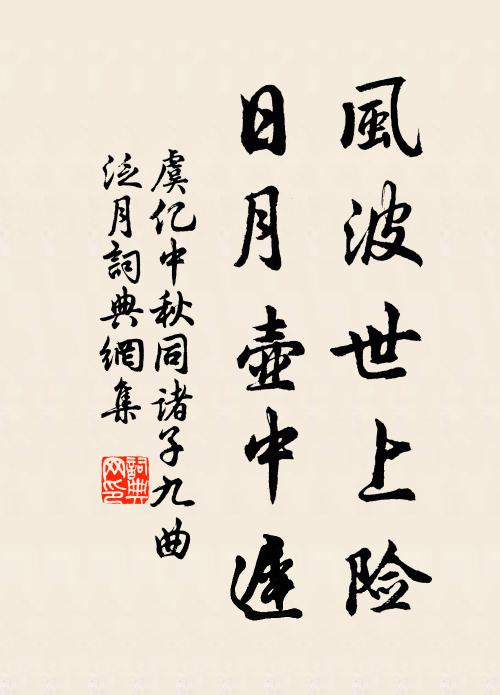 風波世上险
日月壺中遲
虞仡中秋同諸子九曲
泛月詞典網集
詞典网印